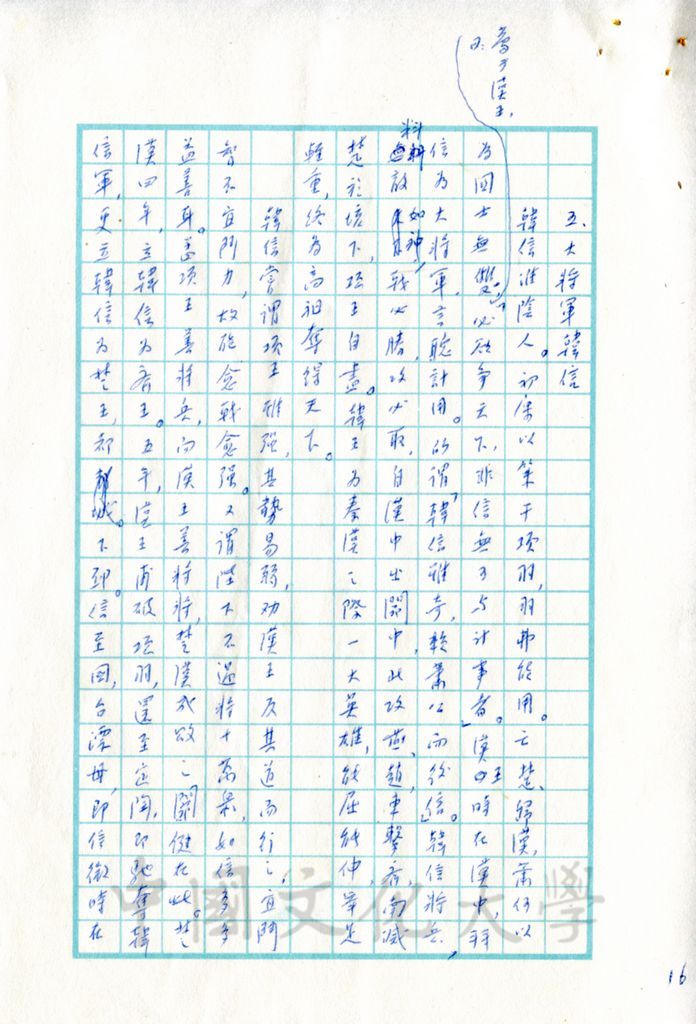 薦于漢王,
曰:
五、大將軍韓信
韓信淮陰人。初屢以策干項羽,羽弗能用。亡楚歸漢,蕭何以
為國士無雙,「必欲爭天下,非信無可与計事者。」漢王時在漢中,拜
信為大將軍,言聽計用。所謂「韓信雖奇,賴蕭公而後信」。韓信將兵,
料敵如神,戰必勝,攻必取,自漢中出關中,北攻燕、趙,東擊齊,南滅
楚於垓下,項王自盡。韓王為秦漢之際一大英雄,能屈能伸,舉足
輕重,終為高祖奪得天下。
韓信嘗謂項王雖強,其勢易弱,勸漢王反其道而行之,宜鬥
智不宜鬥力,故能愈戰愈強。又謂陛下不過將十萬眾,如信多多
益善耳。蓋項王善將兵,而漢王善將將,楚漢成敗之關健在此。
漢四年,立韓信為齊王。五年,漢王甫破項羽,還至定陶,即馳奪韓
信軍,更立韓信為楚王,都下邳。信至國,召漂母,即信微時在
中國文化大學
16